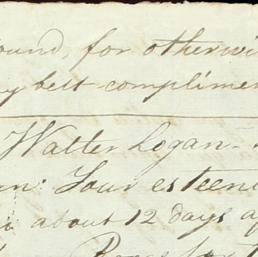 ound, for otherwi
y best compliment
Walter Logan -
n: Your esteem
about 12 days a